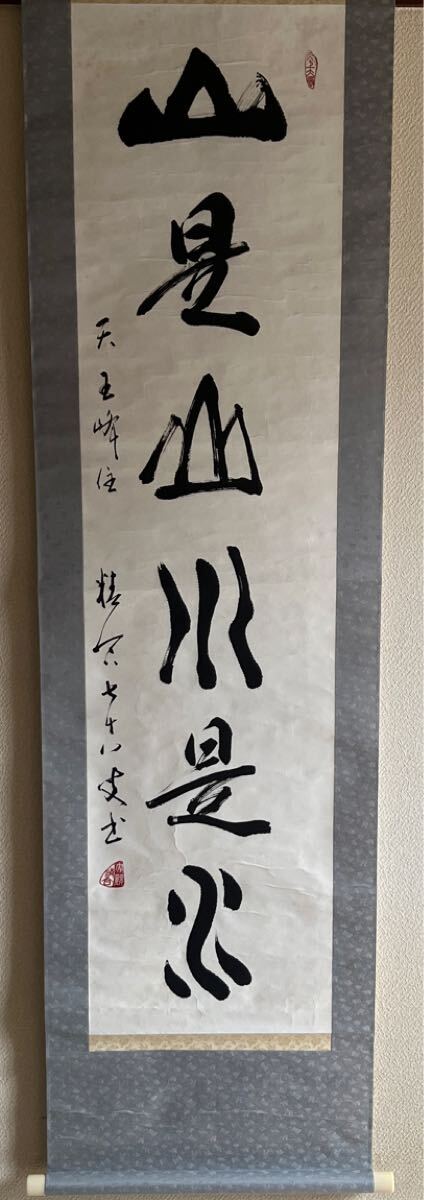 山是山水是水
天王峰住 精 七十八叟书